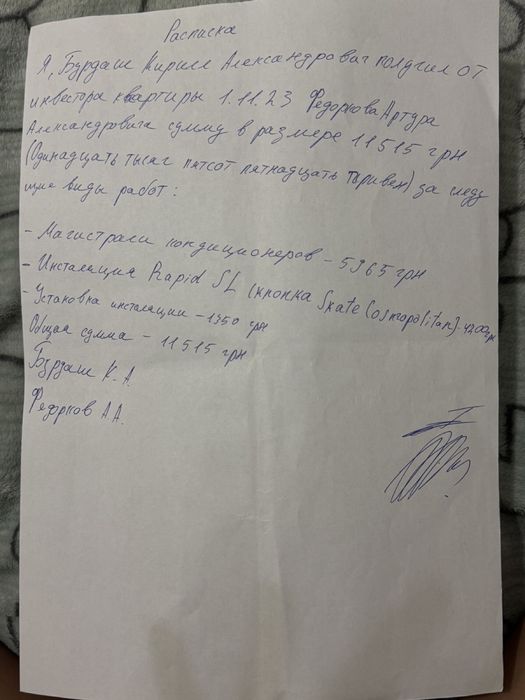 Расписка
Я, Бурдаш Кирилл Александрович получил от
инвестора квартиры 1.11.23 Федоркова Артура
Александровича сумму в размере 11515 грн
(Одинадцать тысяч пятсот пятнадцать гривен) за след
ущие виды работ:
- Магистрали кондиционеров - 5965 грн
- Инсталяция Rapid SL (кнопка Skate Cosmopolitan) - 4200грн
- Установка инсталяции - 1350 грн
Общая сумма - 11515 грн
Бурдаш К.А.
Федорков А.А.